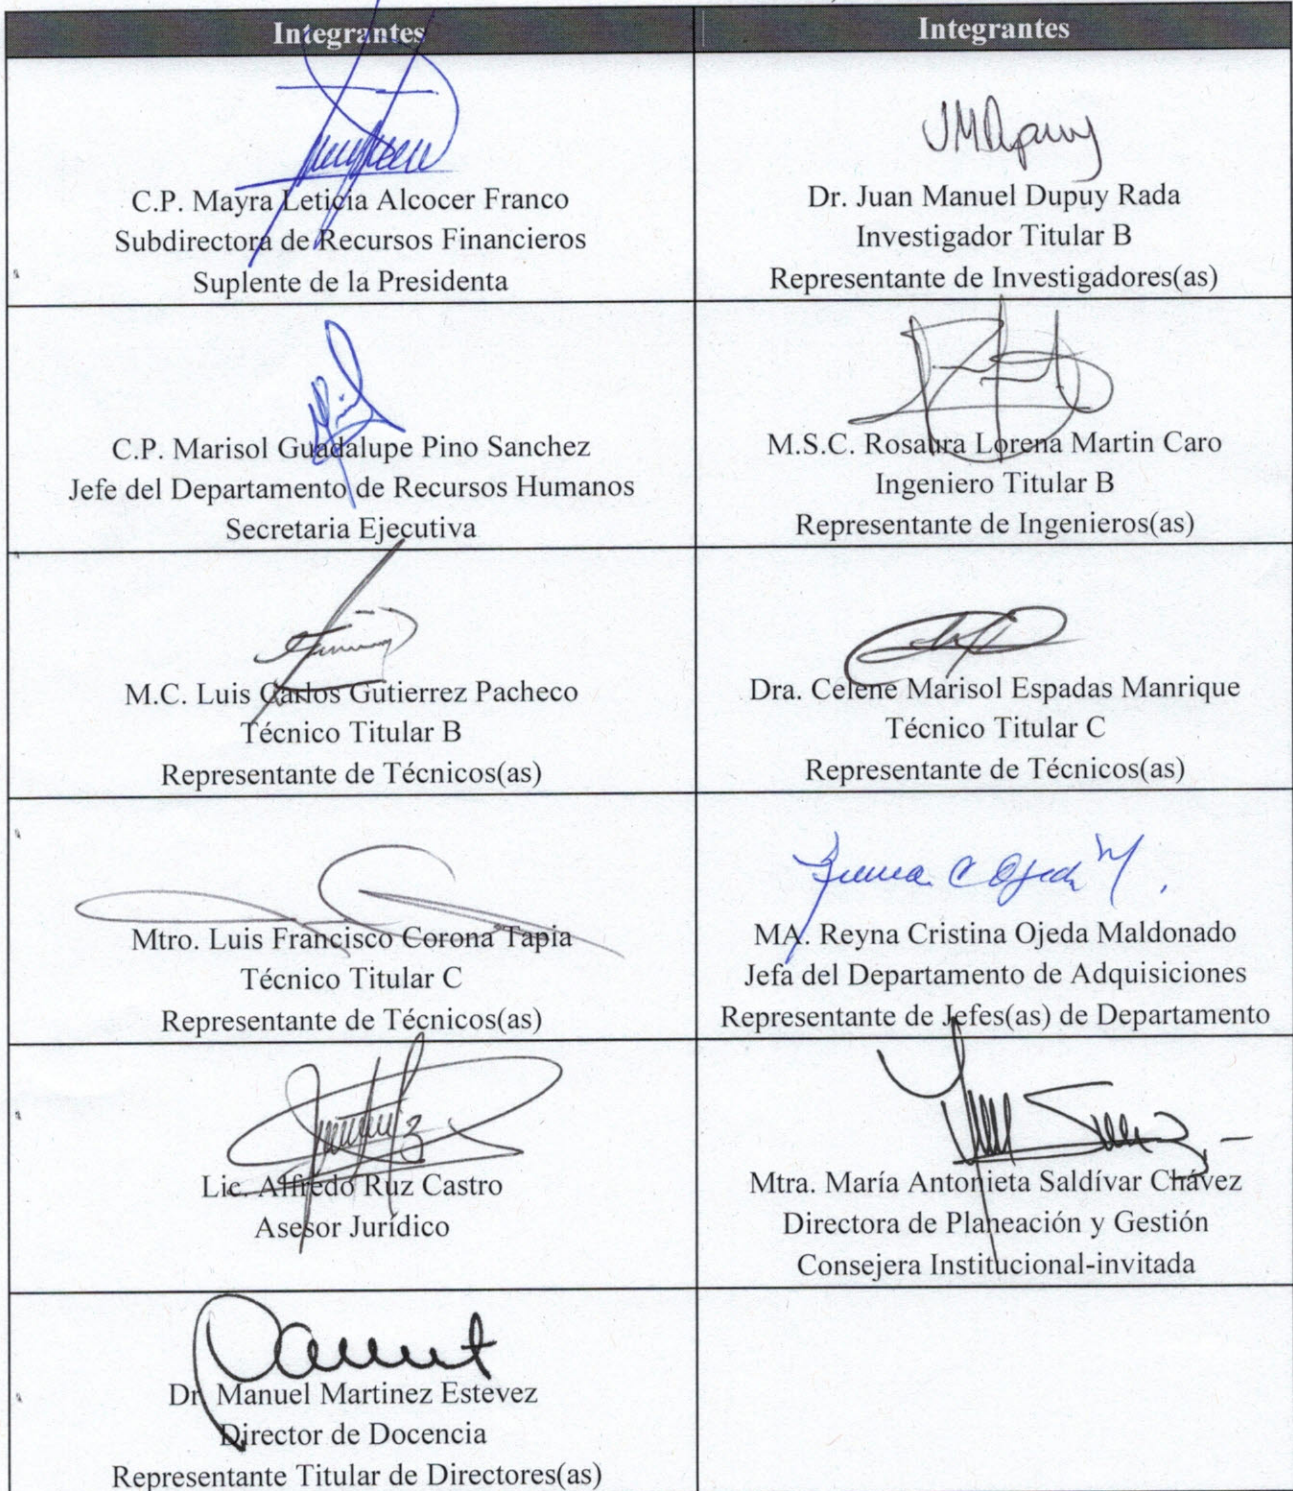 Integrantes
Integrantes
C.P. Mayra Leticia Alcocer Franco
Subdirectora de Recursos Financieros
Suplente de la Presidenta
Dr. Juan Manuel Dupuy Rada
Investigador Titular B
Representante de Investigadores(as)
C.P. Marisol Guadalupe Pino Sanchez
Jefe del Departamento de Recursos Humanos
Secretaria Ejecutiva
M.S.C. Rosaura Lorena Martin Caro
Ingeniero Titular B
Representante de Ingenieros(as)
M.C. Luis Carlos Gutierrez Pacheco
Técnico Titular B
Representante de Técnicos(as)
Dra. Celene Marisol Espadas Manrique
Técnico Titular C
Representante de Técnicos(as)
Mtro. Luis Francisco Corona Tapia
Técnico Titular C
Representante de Técnicos(as)
MA. Reyna Cristina Ojeda Maldonado
Jefa del Departamento de Adquisiciones
Representante de Jefes(as) de Departamento
Lic. Alfredo Ruz Castro
Asesor Jurídico
Mtra. María Antonieta Saldívar Chávez
Directora de Planeación y Gestión
Consejera Institucional-invitada
Dr. Manuel Martinez Estevez
Director de Docencia
Representante Titular de Directores(as)